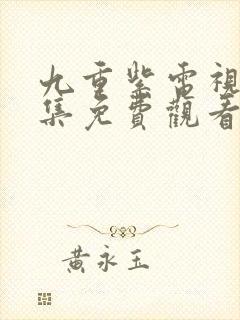 九重紫電視
集免費觀看
黃永玉